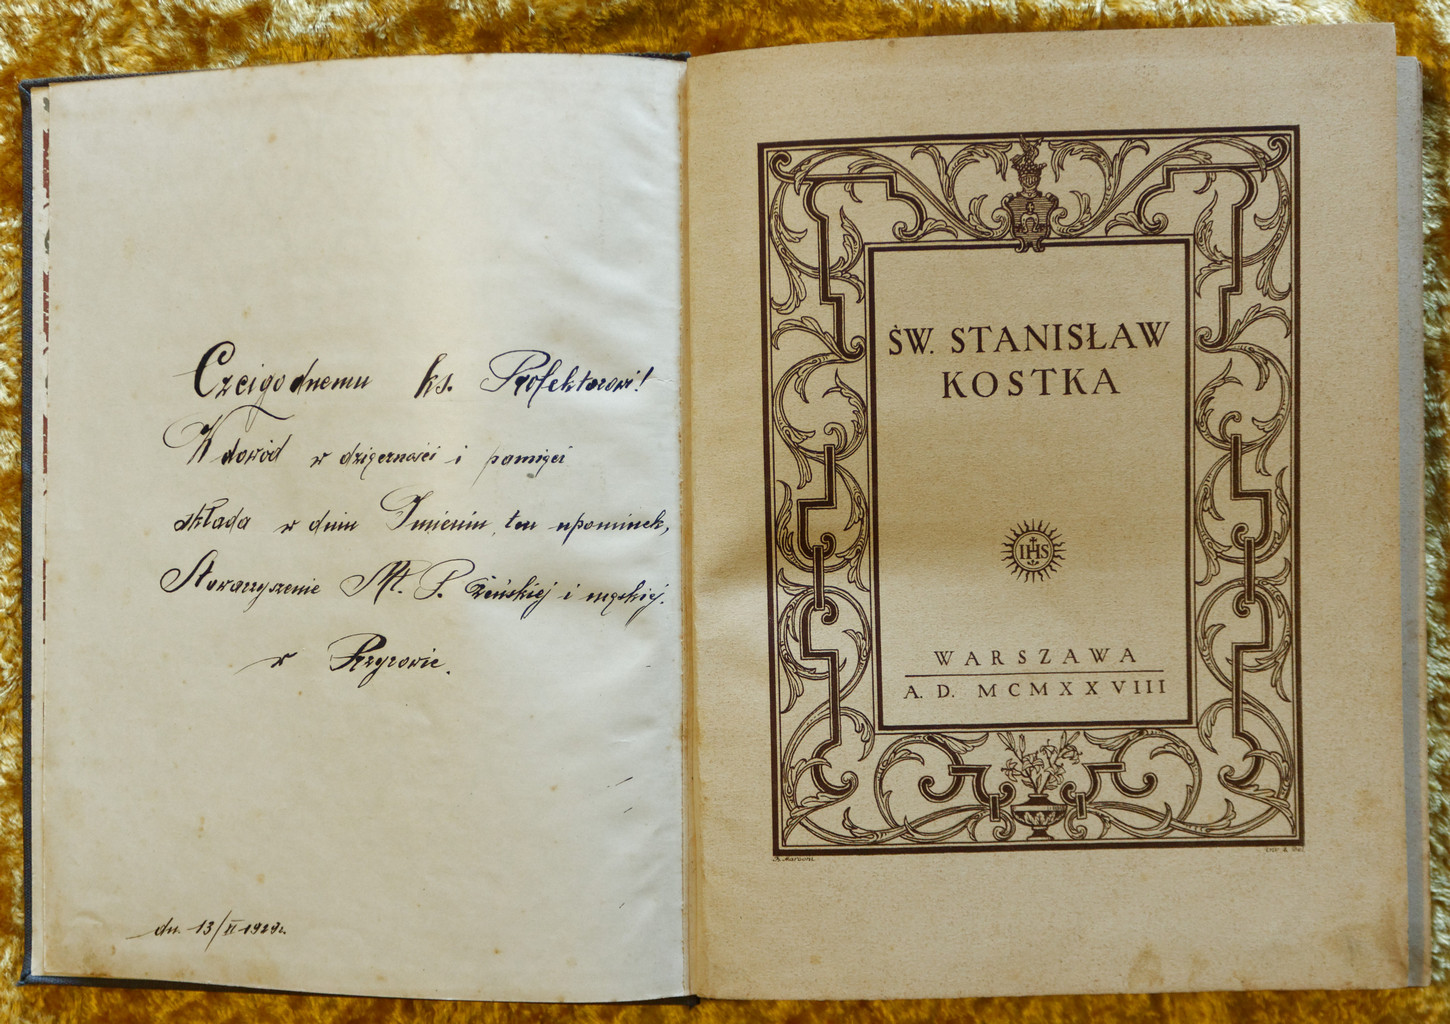 Czcigodnemu ks. Prefektowi!
W dowód w dzięczności i pamięci
składa w dniu Imienin, ten upominek,
Stowarzyszenie Mł. P. żeńskiej i męskiej.
w Przyrowie.
dn. 13/II 1929r.
ŚW. STANISŁAW
KOSTKA
IHS
WARSZAWA
A. D. MCMXXVIII